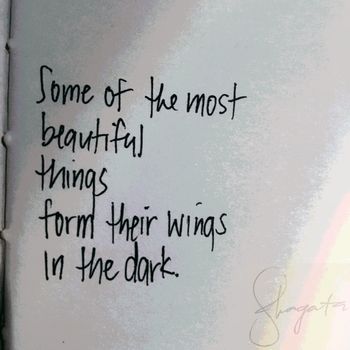 Some of the most
beautiful
things
form their wings
in the dark.